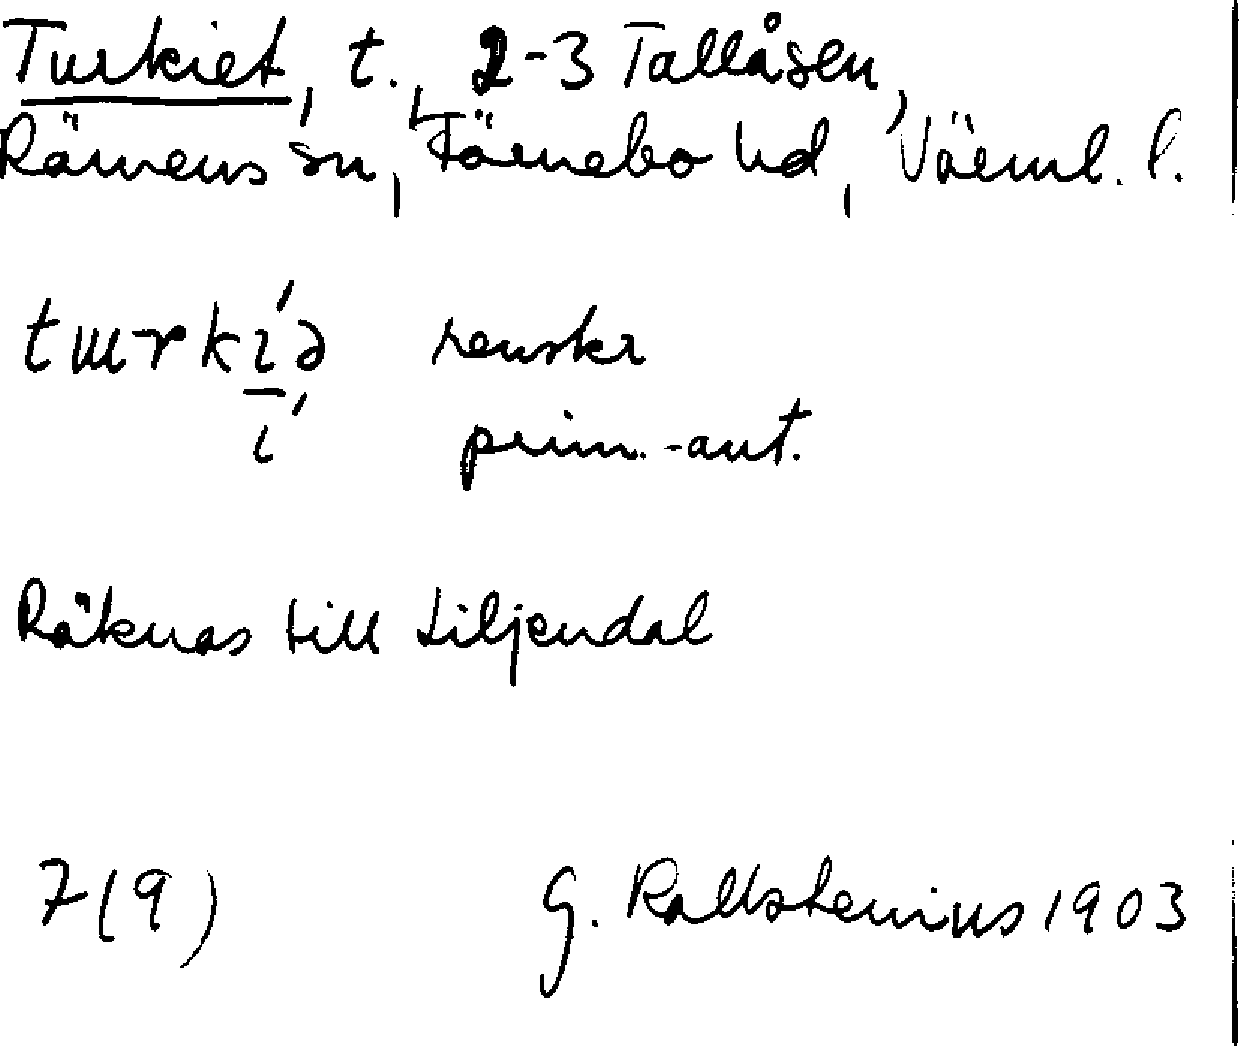 Turkiet, t., 2-3 Tallåsen,
Rämens sn, Färnebo hd, Värml. l.
turkíə renskr
í prim.-ant.
Räknas till Liljendal
7(9) G. Kallstenius 1903